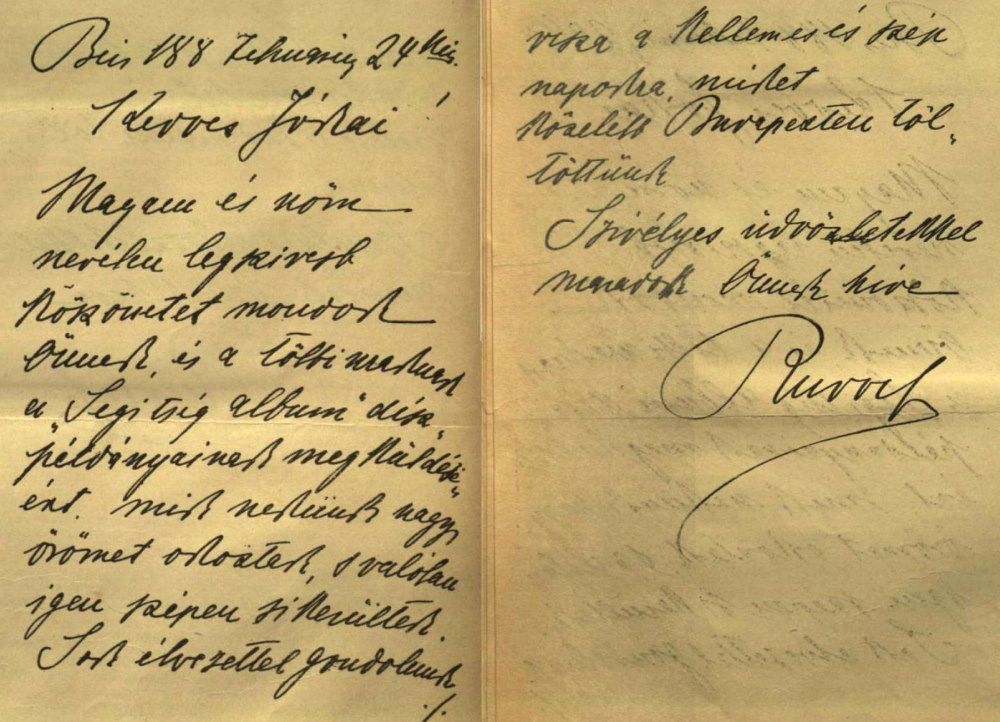 Bécs 188 Februáry 24kén.
Kedves Jókai!
Magam és nőm
nevében legszivesb
köszönetet mondok
Önnek, és a többi uraknak
a „Segitség album" disz„
példányainak megküldésé„
ért. mik nekünk nagy
örömet okoztak, s valóban
igen szépen sikerültek.
Sok élvezettel gondolunk
./.
visza a kellemes és szép
napokra, miket
közelebb Budapesten töl„
töttünk
Szivélyes üdvözletekkel
maradok Önnek hive
Rudolf